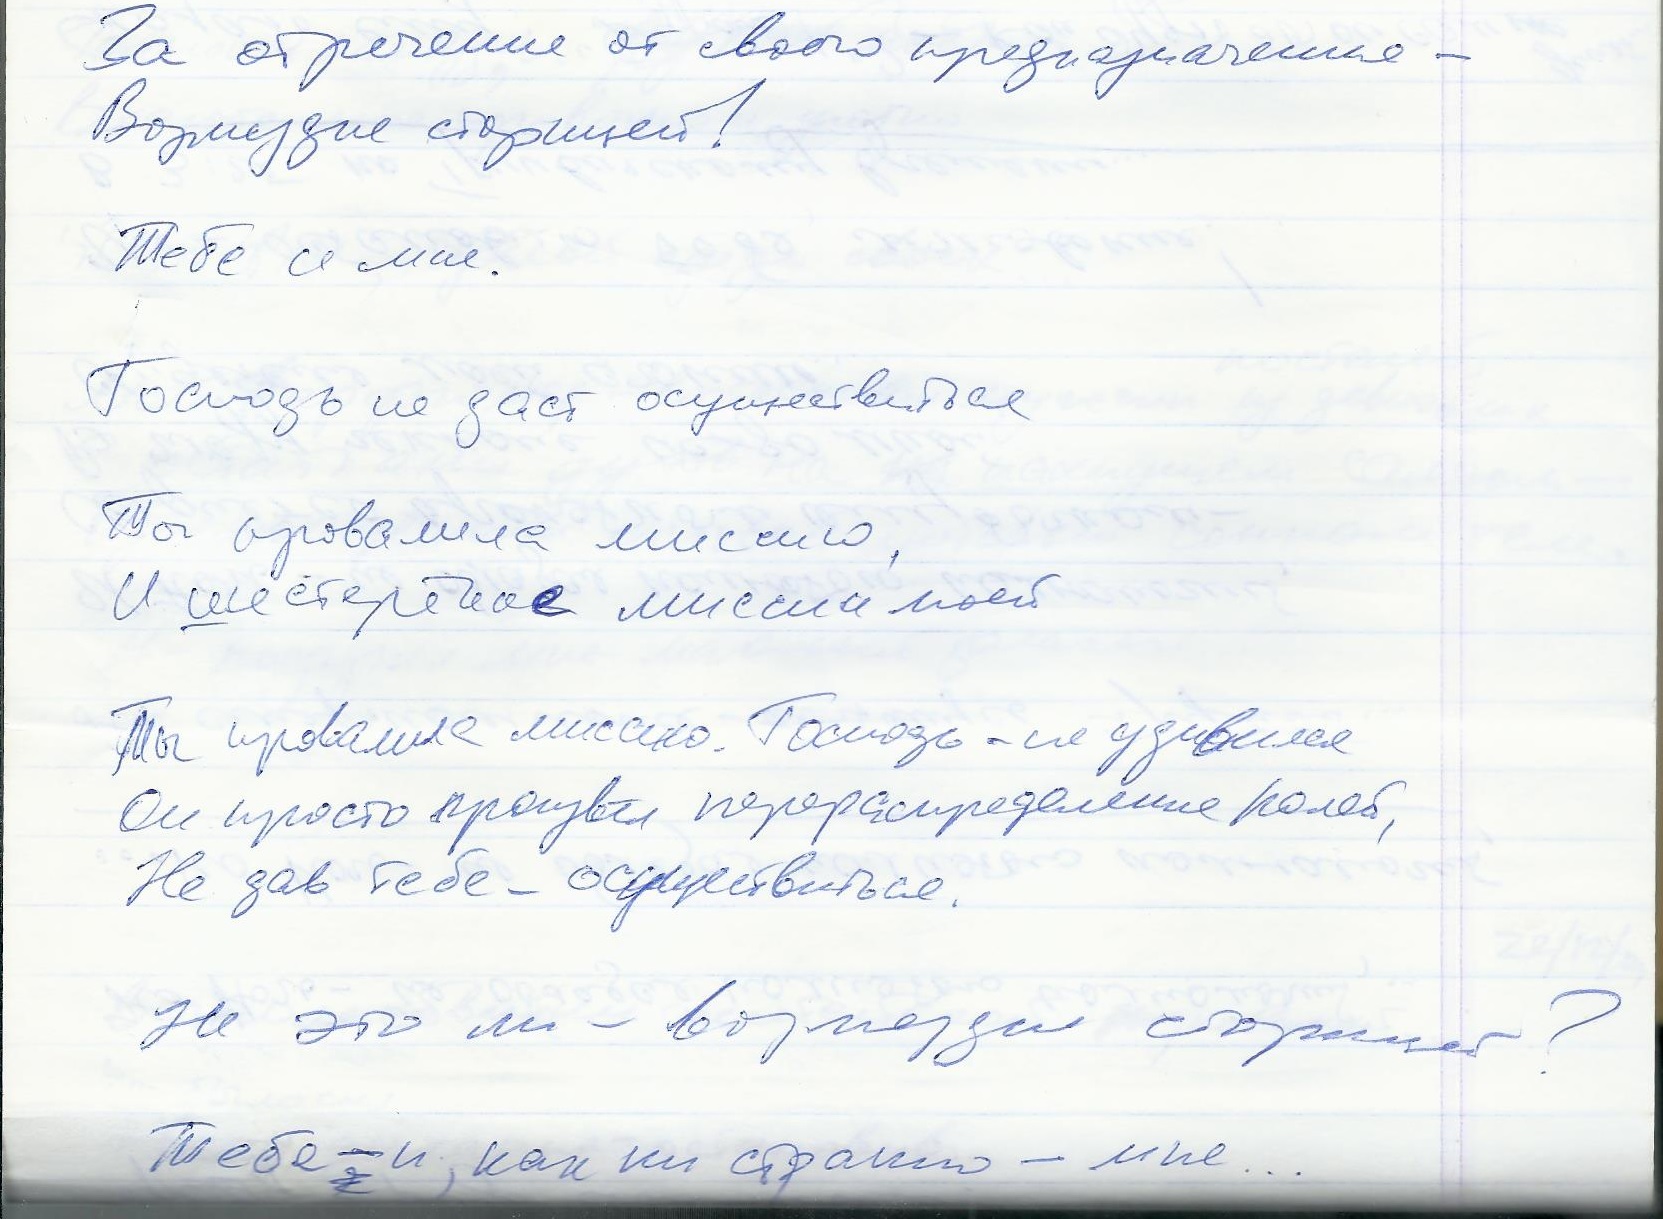 За отречение от своего предназначения –
Возмездие сторицей!
Тебе и мне.
Господь не даст осуществиться
Ты провалила миссию,
И шестерёнке миссии
Ты провалила миссию. Господь – не удивился
Он просто произвёл перераспределение ролей,
Не дав тебе – осуществиться.
Не это ли – возмездие сторицей?
Тебе – и, как ни странно – мне...